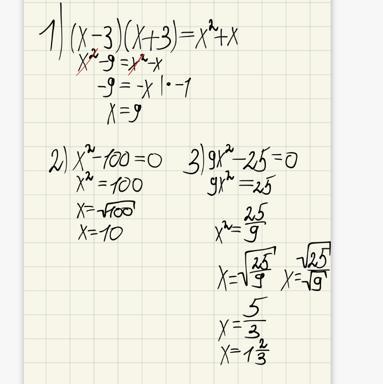 1) (x-3)(x+3)=x²+x
x²-9=x²-x
-9=-x |·-1
x=9
2) x²-100=0
x²=100
x=√100
x=10
3) 9x²-25=0
9x²=25
x²=25/9
x=√(25/9) x=√25/√9
x=5/3
x=1 2/3